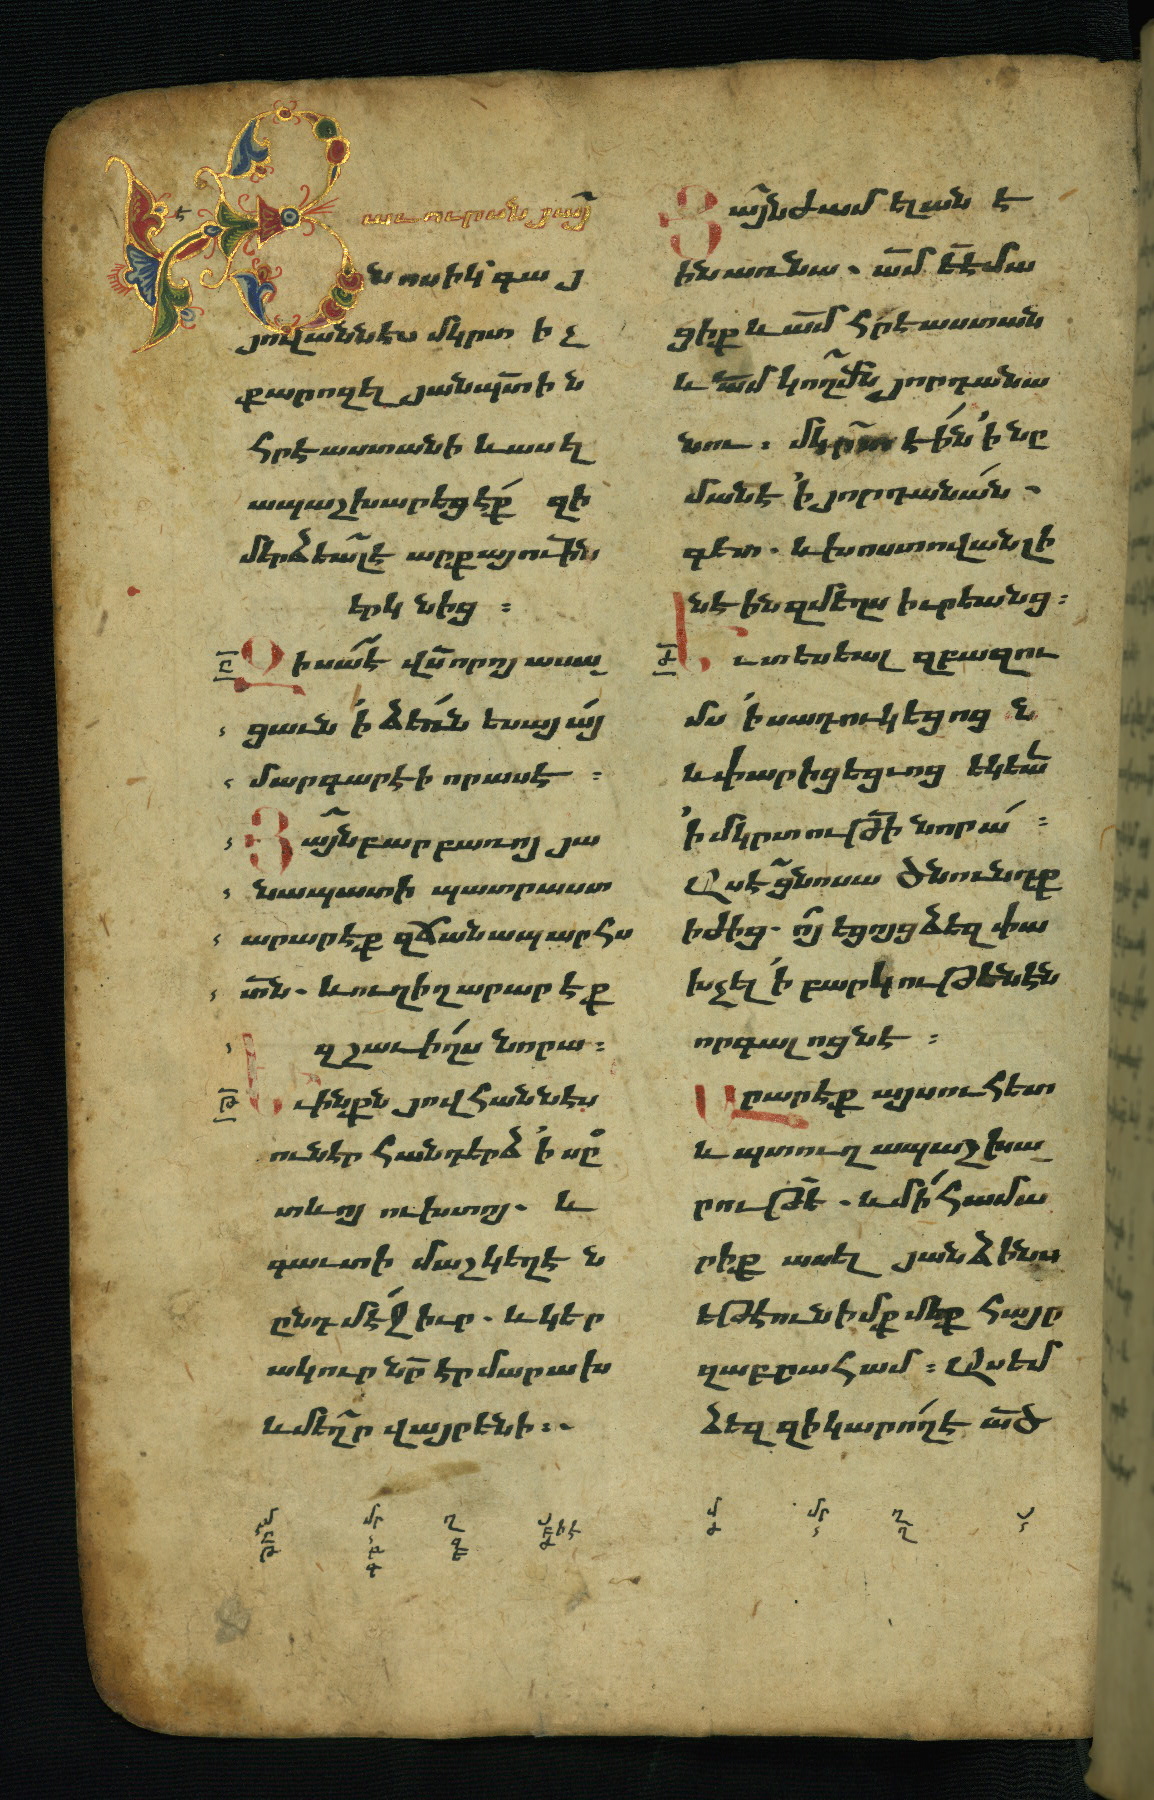 Յ աւուրսն յայն
նոսիկ գայ
յովաննէս մկրտիչ
քարոզել յանապ̅տին
հրէաստանի և ասել
ապաշխարեցէք զի
մերձեալ է արքայութին
երկնից ։
Զի սա է վս̅ որոյ ասա
ցաւն ի ձեռն եսայայ
մարգարէի որ ասէ ։
Ձայն բարբառոյ յա
նապատի պատրաստ
արարէք զճանապարհս
տն̅. և ուղիղ արարէք
զշաւիղս նորա ։
Ե ւ ինքն յովհաննէս
ունէր հանդերձ ի ստ
տևոյ ուխտոյ. և
գաւտի մաշկեղէն
ընդ մէջ իւր. և կեր
ակուր նր̅ էր մարախ
և մեղր վայրենի ։
Յայնժամ ելանէ
ին առ նա. ամ̅ եէ̅մա
ցիք և ամ̅ հրէաստան
և ամ̅ կողմն յորդանա
նու ։ մկրտէին ի նը
մանէ ի յորդանան
գետ. և խոստովան լի
նէին զմեղս իւրեանց ։
Ե ւ տեսեալ զբազու
մս ի սադուկեցոցն
և փարիցեցւոց եկեալ
ի մկրտութի̅ նորա ։
Ասէ ցնոսա ծնունդք
իժից. ո՞յ եցոյց ձեզ փա
խչել ի բարկութենէն
որ գալոցն է ։
Արարէք այսուհետ
և պտուղ ապաշխա
րութե̅. և մի համա
րիք ասել յանձինս
եթէ ունիմք մեք հայր
զաբրահամ ։ Ասեմ
ձեզ զի կարող է ա̅ծ